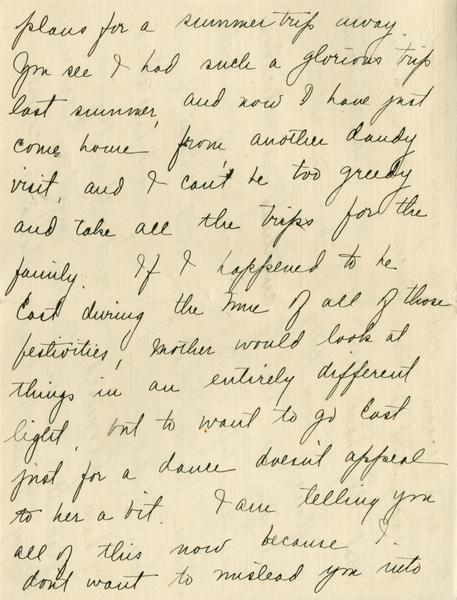 plans for a summer trip away.
You see I had such a glorious trip
last summer, and now I have just
come home from another dandy
visit, and I can't be too greedy
and take all the trips for the
family. If I happened to be
East during the time of all of those
festivities, Mother would look at
things in an entirely different
light, but to want to go East
just for a dance doesn't appeal
to her a bit. I am telling you
all of this now because I
don't want to mislead you into